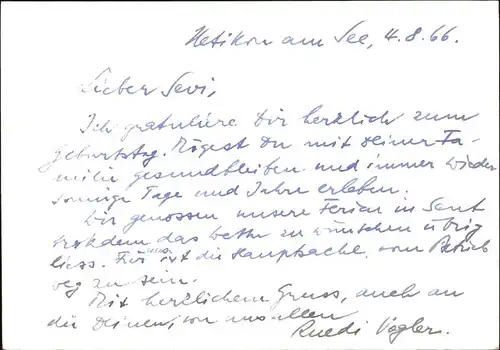 Uetikon am See, 4.8.66.
Lieber Sevi,
Ich gratuliere Dir herzlich zum
Geburtstag. Mögest Du mit Deiner Fa-
milie gesund bleiben und immer wieder
sonnige Tage und Jahre erleben.
Wir genossen unsere Ferien in Sent
trotzdem das Wetter zu wünschen übrig
liess. Für uns ist die Hauptsache, vom Betrieb
weg zu sein.
Mit herzlichem Gruss, auch an
die Deinen, von uns allen
Ruedi Vogler.